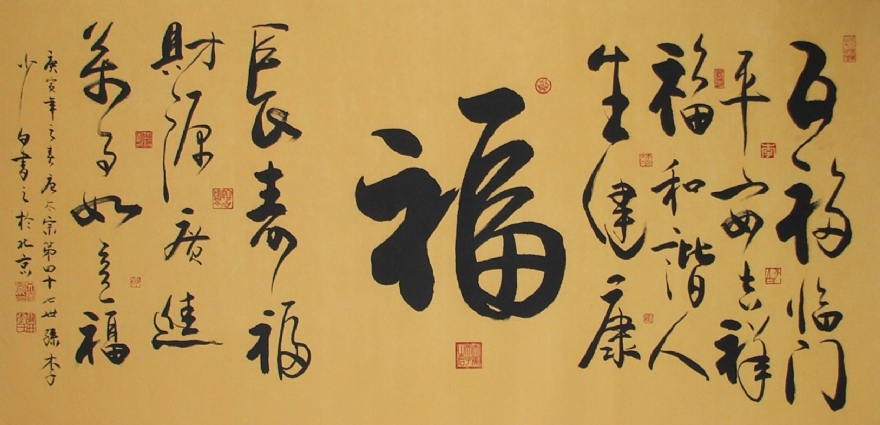 百福临门
平安吉祥
福和谐人
生健康
福
長寿福
財源廣進
萬事如意福
庚寅年之春唐太宗第四十七世孫李
少白書之於北京